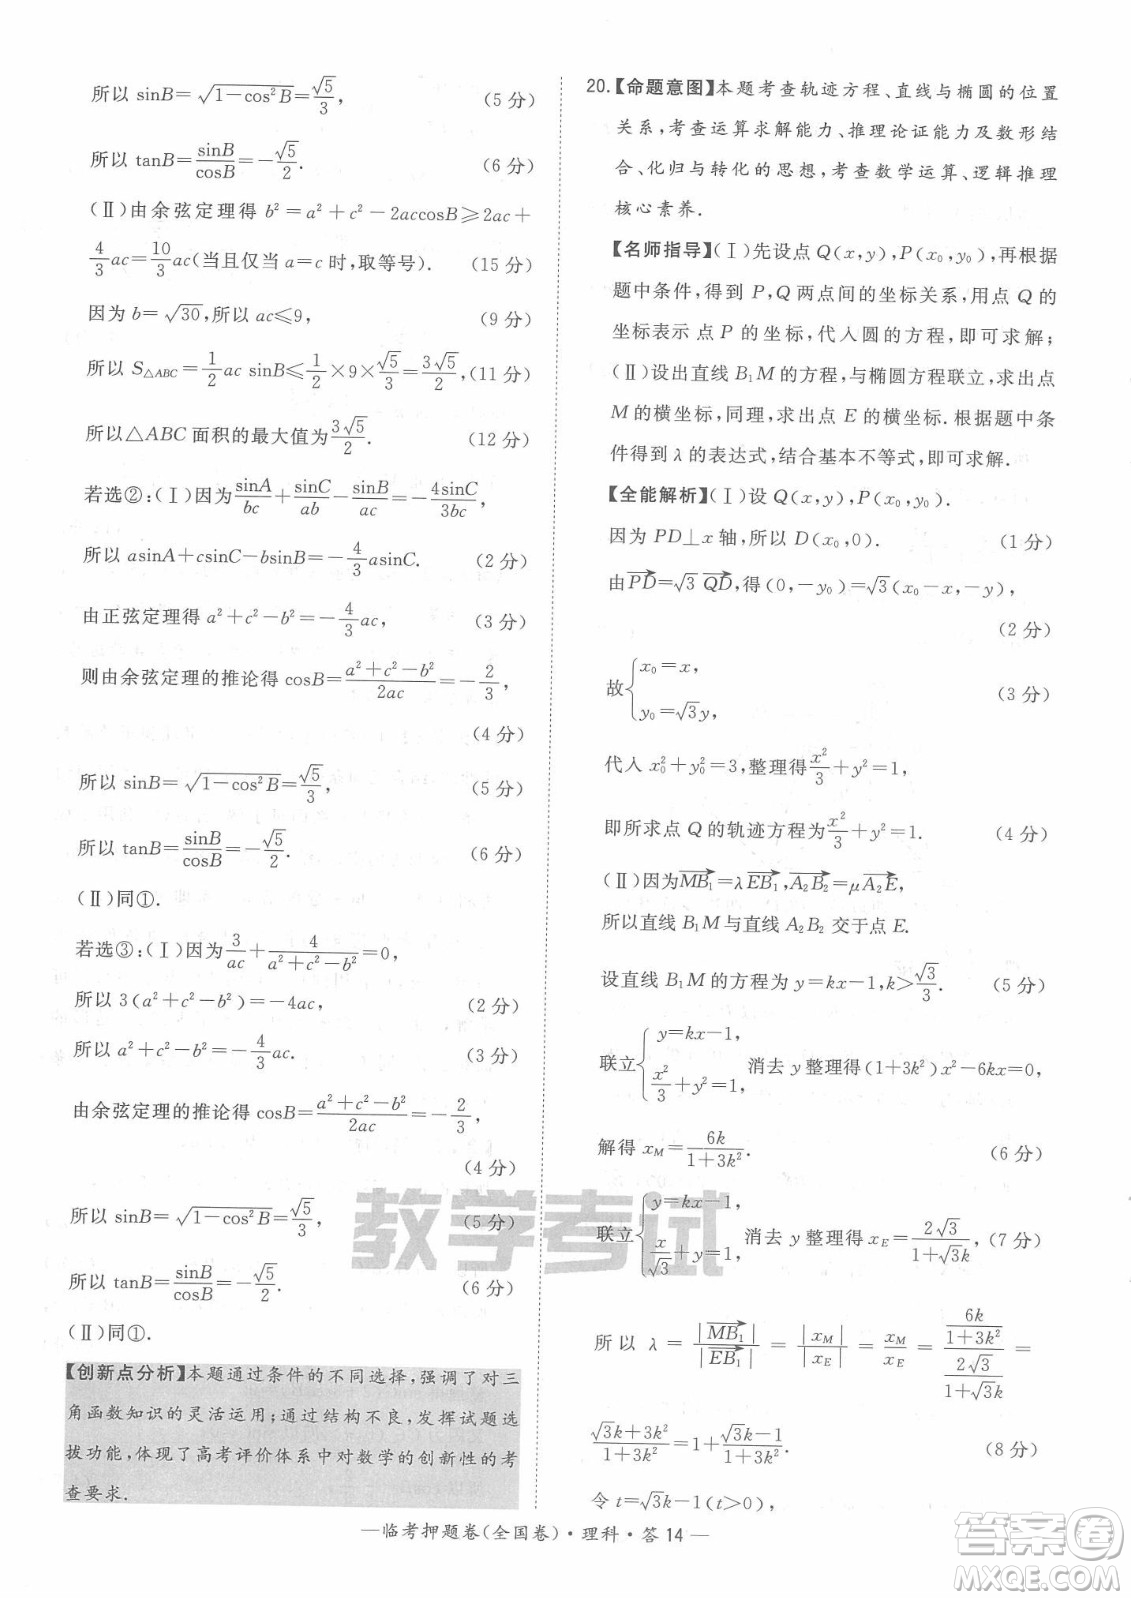 所以 sinB=√(1-cos²B)=√5/3, (5 分)
所以 tanB=sinB/cosB=-√5/2. (6 分)
(Ⅱ)由余弦定理得 b²=a²+c²-2accosB≥2ac+
4/3 ac=10/3 ac(当且仅当 a=c 时,取等号). (15 分)
因为 b=√30,所以 ac≤9, (9 分)
所以 S△ABC=1/2 ac sinB≤1/2×9×√5/3=3√5/2,(11 分)
所以△ABC 面积的最大值为3√5/2. (12 分)
若选②:(Ⅰ)因为sinA/bc+sinC/ab-sinB/ac=-4sinC/3bc,
所以 asinA+csinC-bsinB=-4/3 asinC. (2 分)
由正弦定理得 a²+c²-b²=-4/3 ac, (3 分)
则由余弦定理的推论得 cosB=(a²+c²-b²)/2ac=-2/3,
(4 分)
所以 sinB=√(1-cos²B)=√5/3, (5 分)
所以 tanB=sinB/cosB=-√5/2. (6 分)
(Ⅱ)同①.
若选③:(Ⅰ)因为3/ac+4/(a²+c²-b²)=0,
所以 3(a²+c²-b²)=-4ac, (2 分)
所以 a²+c²-b²=-4/3 ac. (3 分)
由余弦定理的推论得 cosB=(a²+c²-b²)/2ac=-2/3,
(4 分)
所以 sinB=√(1-cos²B)=√5/3, (5 分)
所以 tanB=sinB/cosB=-√5/2. (6 分)
(Ⅱ)同①.
【创新点分析】本题通过条件的不同选择,强调了对三
角函数知识的灵活运用;通过结构不良,发挥试题选
拔功能,体现了高考评价体系中对数学的创新性的考
查要求.
20.【命题意图】本题考查轨迹方程、直线与椭圆的位置
关系,考查运算求解能力、推理论证能力及数形结
合、化归与转化的思想,考查数学运算、逻辑推理
核心素养.
【名师指导】(Ⅰ)先设点 Q(x,y),P(x₀,y₀),再根据
题中条件,得到 P,Q 两点间的坐标关系,用点 Q 的
坐标表示点 P 的坐标,代入圆的方程,即可求解;
(Ⅱ)设出直线 B₁M 的方程,与椭圆方程联立,求出点
M 的横坐标,同理,求出点 E 的横坐标.根据题中条
件得到 λ 的表达式,结合基本不等式,即可求解.
【全能解析】(Ⅰ)设 Q(x,y),P(x₀,y₀).
因为 PD⊥x 轴,所以 D(x₀,0). (1 分)
由PD=√3 QD,得(0,-y₀)=√3(x₀-x,-y),
(2 分)
故{x₀=x,
y₀=√3y, (3 分)
代入 x₀²+y₀²=3,整理得x²/3+y²=1,
即所求点 Q 的轨迹方程为x²/3+y²=1. (4 分)
(Ⅱ)因为MB₁=λEB₁,A₂B₂=μA₂E,
所以直线 B₁M 与直线 A₂B₂ 交于点 E.
设直线 B₁M 的方程为 y=kx-1,k>√3/3. (5 分)
联立{y=kx-1,
x²/3+y²=1, 消去 y 整理得(1+3k²)x²-6kx=0,
解得 x_M=6k/(1+3k²). (6 分)
联立{y=kx-1,
x/√3+y=1, 消去 y 整理得 x_E=2√3/(1+√3k),(7 分)
所以 λ=|MB₁|/|EB₁|=|x_M|/|x_E|=x_M/x_E=(6k/(1+3k²))/(2√3/(1+√3k))=
(√3k+3k²)/(1+3k²)=1+(√3k-1)/(1+3k²). (8 分)
令 t=√3k-1(t>0),
—临考押题卷(全国卷)·理科·答 14—
教学考试
答案圈
MXQE.COM